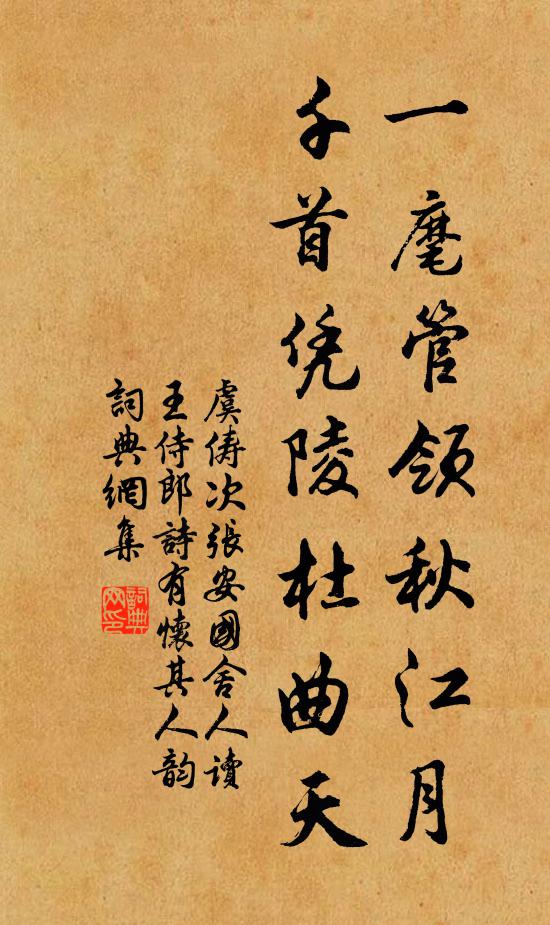 一麾管領秋江月
千首凭陵杜曲天
虞儔次張安國舍人讀
王侍郎詩有懷其人韵
詞典網集
詞典
网印